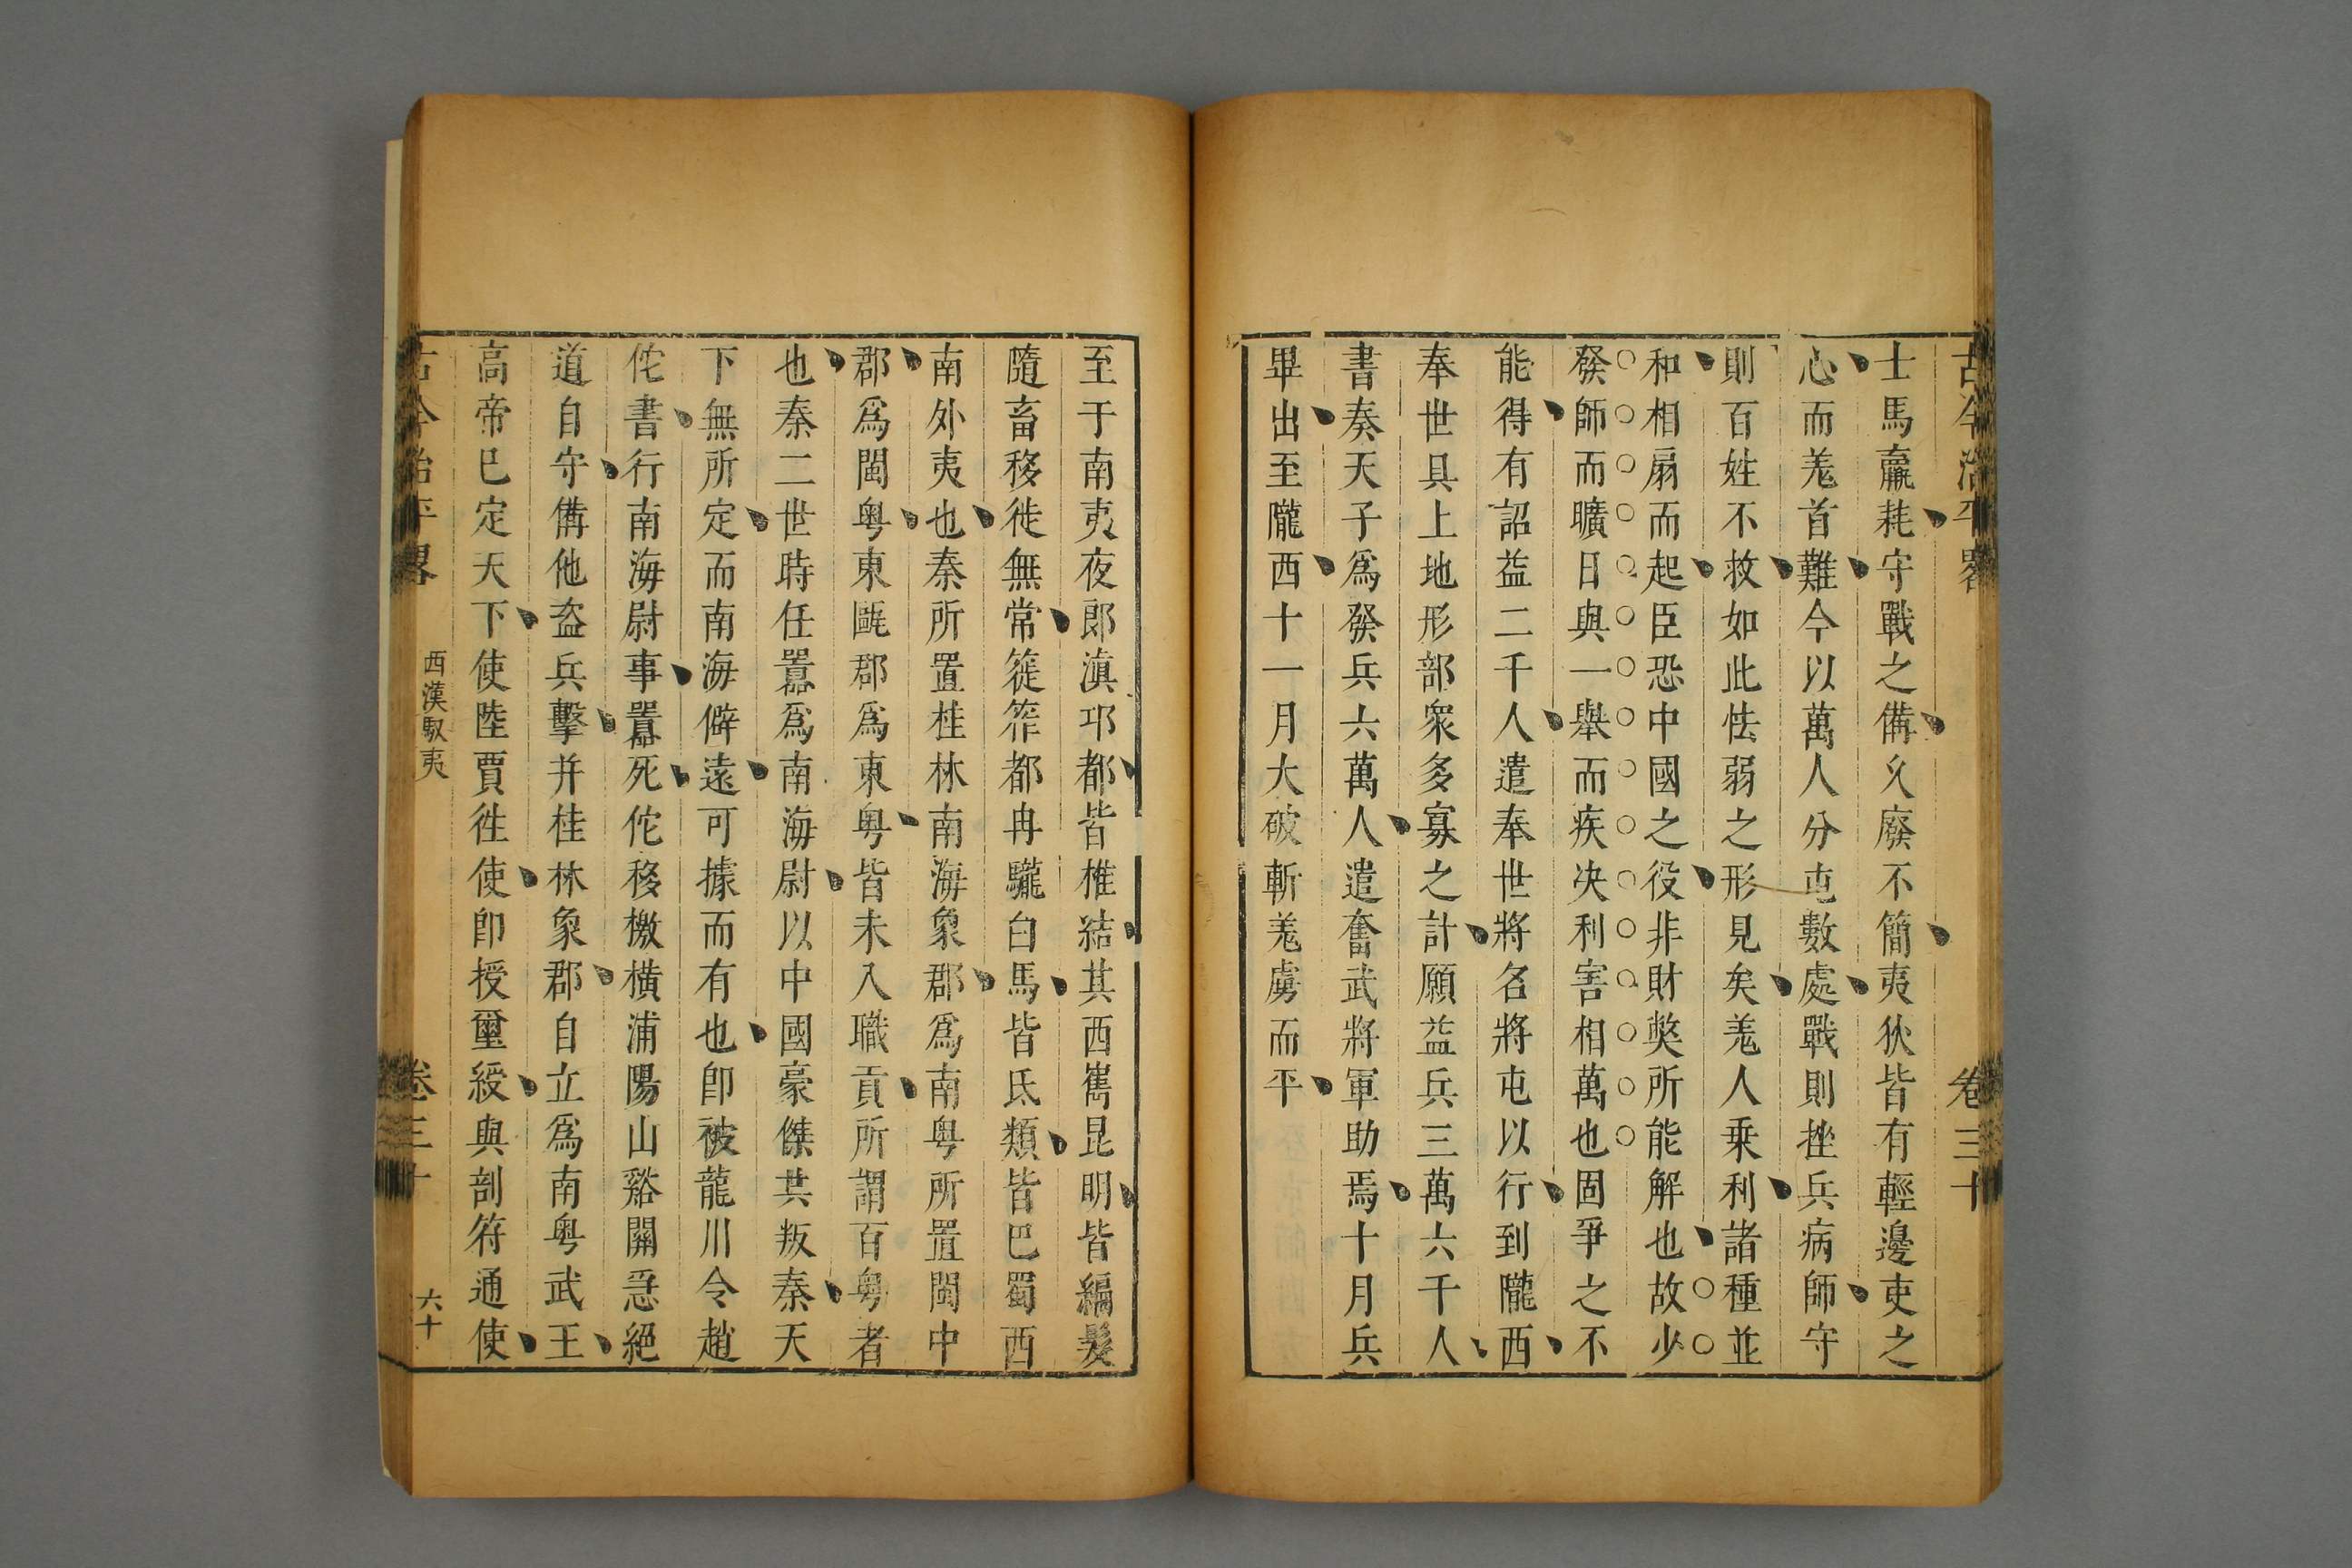 古今治平畧 卷三十
士馬羸耗守戰之備久廢不簡夷狄皆有輕邊吏之
心而羌首難今以萬人分屯數處戰則挫兵病師守
則百姓不救如此怯弱之形見矣羌人乗利諸種並
和相扇而起臣恐中國之役非財獘所能解也故少
發師而曠日與一舉而疾决利害相萬也固爭之不
能得有詔益二千人遣奉世將名將屯以行到隴西
奉世具上地形部衆多寡之計願益兵三萬六千人
書奏天子爲發兵六萬人遣奮武將軍助焉十月兵
畢出至隴西十一月大破斬羌虜而平
至于南夷夜郎滇邛都皆椎結其西嶲昆明皆編髮
隨畜移徙無常簁筰都冉駹白馬皆氐類皆巴蜀西
南外夷也秦所置桂林南海象郡爲南粤所置閩中
郡爲閩粤東甌郡爲東粤皆未入職貢所謂百粤者
也秦二世時任囂爲南海尉以中國豪傑共叛秦天
下無所定而南海僻遠可據而有也卽被龍川令趙
佗書行南海尉事囂死佗移檄橫浦陽山谿關急絕
道自守備他盜兵擊并桂林象郡自立爲南粤武王
高帝已定天下使陸賈徃使卽授璽綬與剖符通使
古今治平畧 西漢馭夷 卷三十 六十